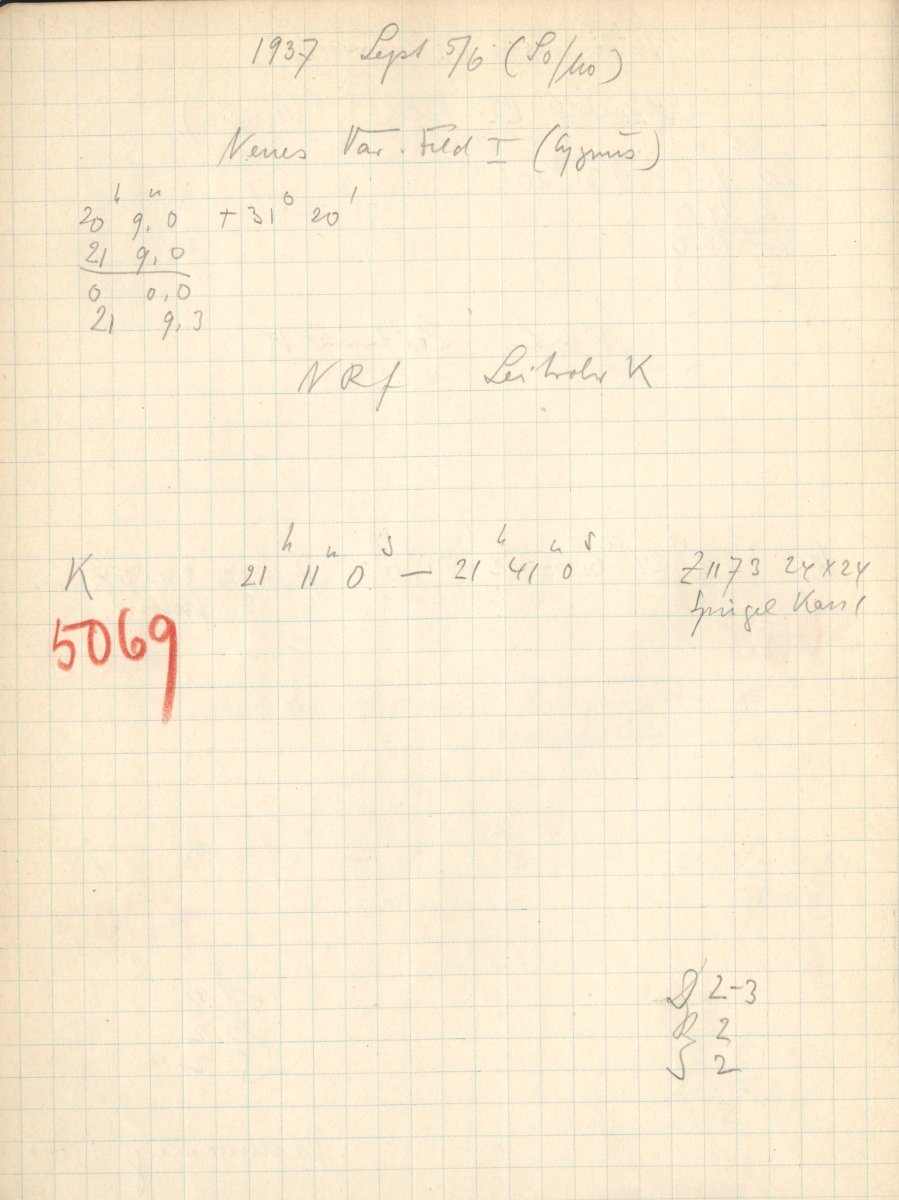 1937 Sept 5/6 (So/Mo)
Neues Var. Feld I (Cygnus)
20h 9,m0 +31° 20'
21 9,0
0 0,0
21 9,3
NRf Leitrohr K
K 21h 11m 0s — 21h 41m 0s Z1173 24x24
5069 Spiegel Kass
D 2-3
R 2
S 2